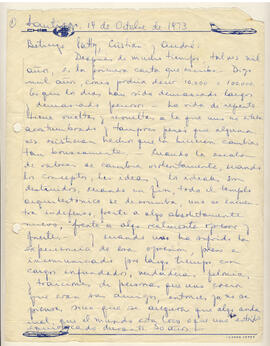 Santiago, 14 de Octubre de 1973
Patty, Cristian y André:
Después de mucho tiempo, tal vez mil
años, de la primera carta que escribo. Digo
mil años como podría decir 10.500 o 100.000
los días han sido demasiado largos,
demasiado penosos. La vida de repente
tiene vueltas, a lo que uno no está
acostumbrado y tampoco pensó que alguna
vez hechos que la hicieran cambiar
tan bruscamente. Cuando la escala
de valores se cambia violentamente, cuando
los conceptos, las ideas y los ideales son
destruidos, cuando en fin, todo el templo
arquitectónico se derrumba, uno se encuentra
indefenso frente a algo absolutamente
nuevo, frente a algo realmente
y cuando uno ha sufrido la
experiencia de esa opresión, preso e
incomunicado por largo tiempo con
cargos infundados,
y traiciones de personas que uno creía
que eran sus amigos, entonces ya no se
piensa, sino que se asegura que algo anda
mal, que el mundo está loco o que uno estuvo
equivocado durante 30 años